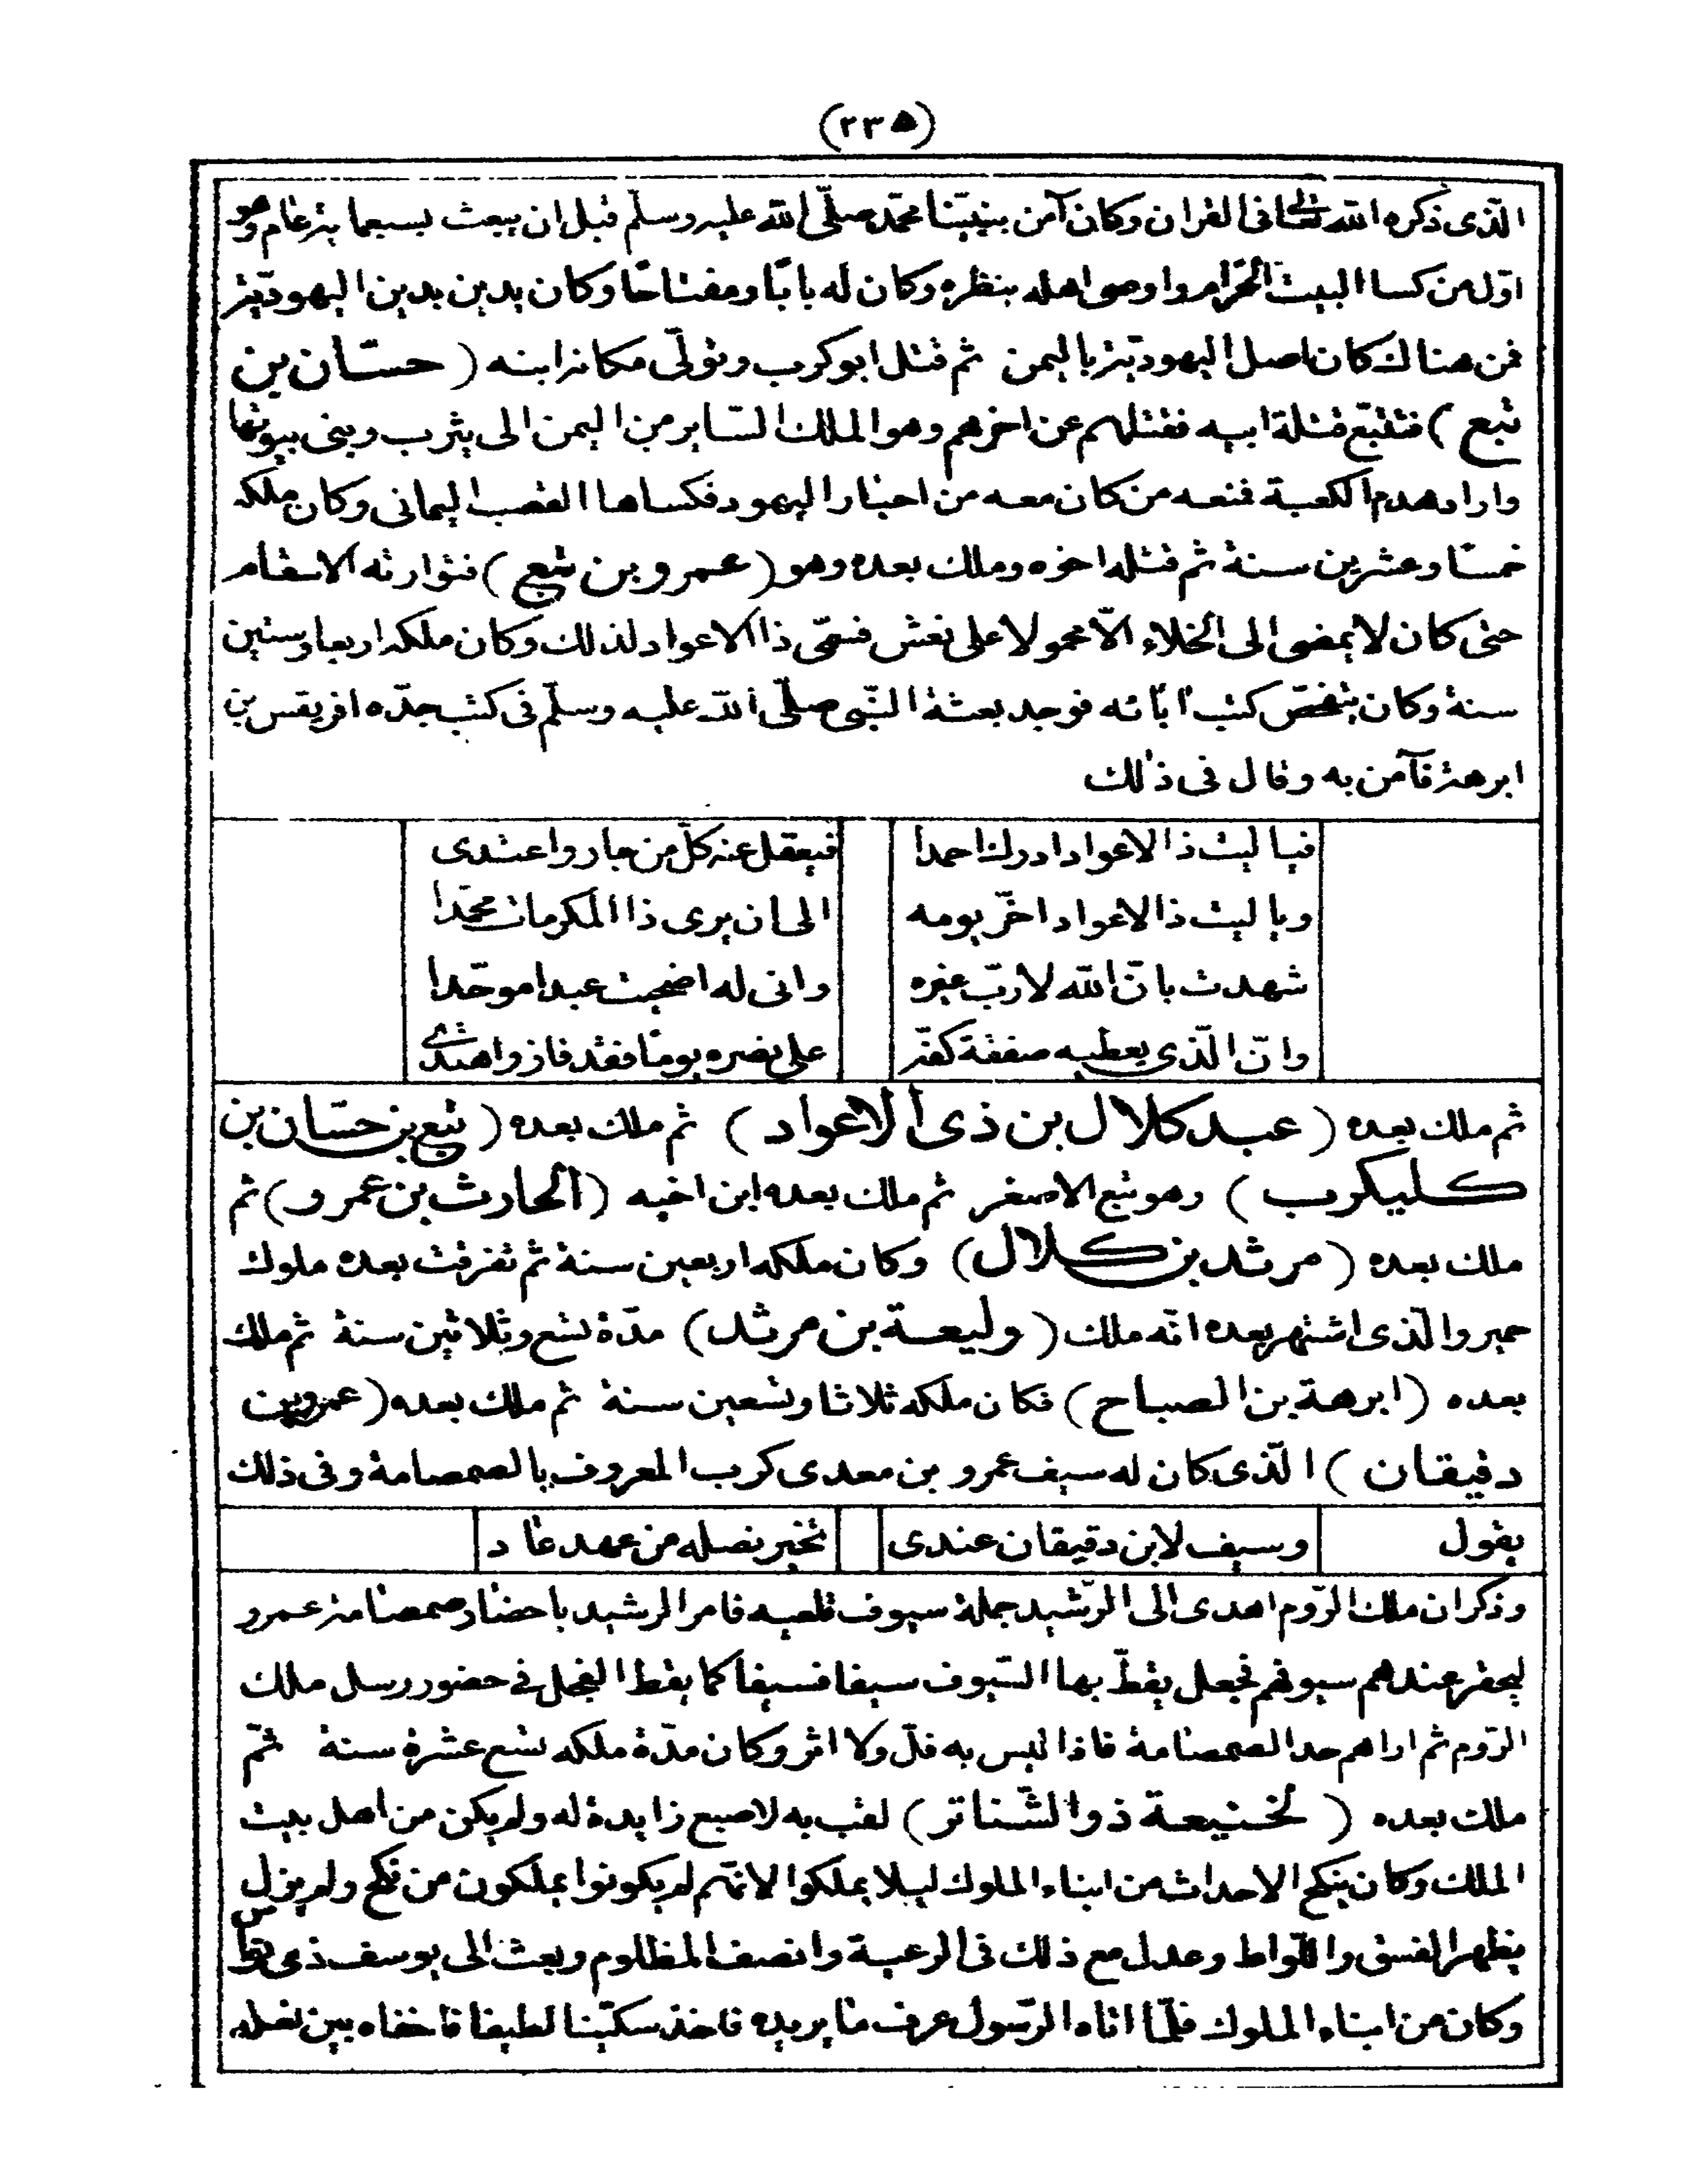 (٢٣٥)
الّذى ذكره الله تعالى فى القران وكان آمن بنبيّنا محمّد صلّى الله عليه وسلّم قبل ان يبعث بسبعماية عام وهو
اوّل من كسا البيت الحرام واوصى اهله بنظره وكان له بابًا ومفتاحًا وكان يدين بدين اليهوديّة
فمن هناك كان اصل اليهوديّة باليمن ثم قتل ابو كرب وتولّى مكانه ابنه (حسّان بن
تبع) فتتبّع قتلة ابيه فقتلهم عن اخرهم وهو الملك السّاير من اليمن الى يثرب وبنى بيوتها
واراد هدم الكعبة فمنعه من كان معه من احبار اليهود فكساها القصب اليمانى وكان ملكه
خمسًا وعشرين سنة ثم قتله اخوه وملك بعده وهو (عمرو بن تبع) فتوارثه الاسقام
حتى كان لا يمضى الى الخلاء الّا محمولا على نعش فسمّى ذا الاعواد لذلك وكان ملكه اربعا وستين
سنة وكان يتفحّص كتب آبائه فوجد بعثة النّبى صلّى الله عليه وسلّم فى كتب جدّه افريقس بن
ابرهة فآمن به وقال فى ذلك
فيا ليت ذا الاعواد ادرك احمدا فيعقل عنه كلّ من جار واعتدى
ويا ليت ذا الاعواد اخّر يومه الى ان يرى ذا المكرمات محمّدا
شهدت بانّ الله لا ربّ غيره وانى له اضحيت عبدا موحّدا
وانّ الّذى يعطيه صفقة كفّه على نصره يومًا فقد فاز واهتدى
ثم ملك بعده (عبد كلال بن ذى الاعواد) ثم ملك بعده (تبع بن حسّان بن
كليكرب) وهو تبع الاصغر ثم ملك بعده ابن اخيه (الحارث بن عمرو) ثم
ملك بعده (مرثد بن كلال) وكان ملكه اربعين سنة ثم تفرقت بعده ملوك
حمير والّذى اشتهر بعده انّه ملك (وليعة بن مرثد) مدّة تسع وثلاثين سنة ثم ملك
بعده (ابرهة بن الصباح) فكان ملكه ثلاثا وتسعين سنة ثم ملك بعده (عمرو بن
دقيقان) الّذى كان له سيف عمرو بن معدى كرب المعروف بالصمصامة وفى ذلك
يقول وسيف لابن دقيقان عندى تخير نصله من عهد عاد
وذكر ان ملك الرّوم اهدى الى الرّشيد جملة سيوف قلعيه فامر الرشيد باحضار صمصامة عمرو
ليحقر عندهم سيوفهم فجعل يقطّ بها السّيوف سيفا فسيفا كما يقط الفجل فى حضور رسل ملك
الرّوم ثم اراهم حد الصمصامة فاذا ليس به فلّ ولا اثر وكان مدّة ملكه تسع عشرة سنة ثمّ
ملك بعده (لخنيعة ذو الشّناتر) لقب به لاصبع زايدة له ولم يكن من اهل بيت
الملك وكان ينكح الاحداث من ابناء الملوك ليلا يملكوا لانّهم لم يكونوا يملكون من نكح ولم يزل
يظهر الفسق واللّواط وعدل مع ذلك فى الرعية وانصف المظلوم وبعث الى يوسف ذى نواس
وكان من ابناء الملوك فلمّا اتاه الرّسول عرف ما يريده فاخذ سكّينا لطيفا فاخفاه بين نعله